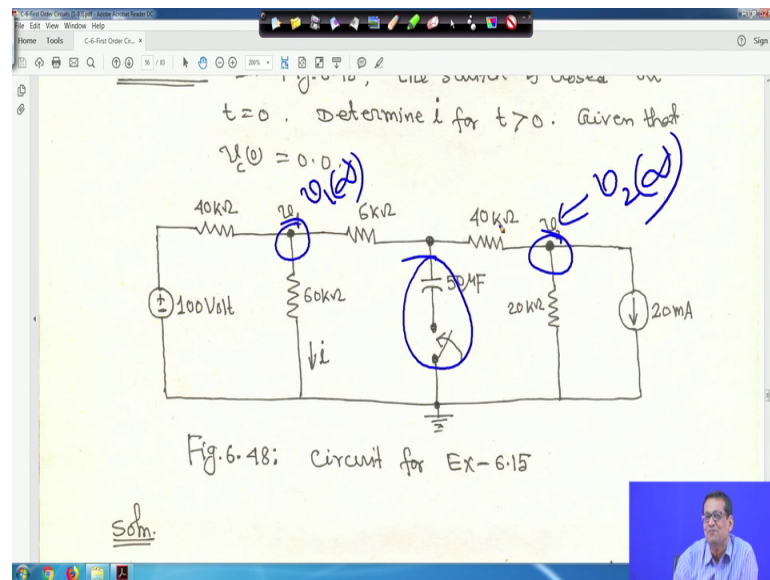 C-6-First Order Circuits [1-83].pdf - Adobe Acrobat Reader DC
File Edit View Window Help
Home Tools C-6-First Order Cir... × Sign
56 / 83 200%
t=0. Determine i for t>0. Given that
v_c(0) = 0.0.
v₁(∞)
v₂(∞)
40kΩ v₁ 6kΩ 40kΩ
100Volt 60kΩ 50μF 20kΩ 20mA
i
Fig.6.48: Circuit for Ex-6.15
Soln.